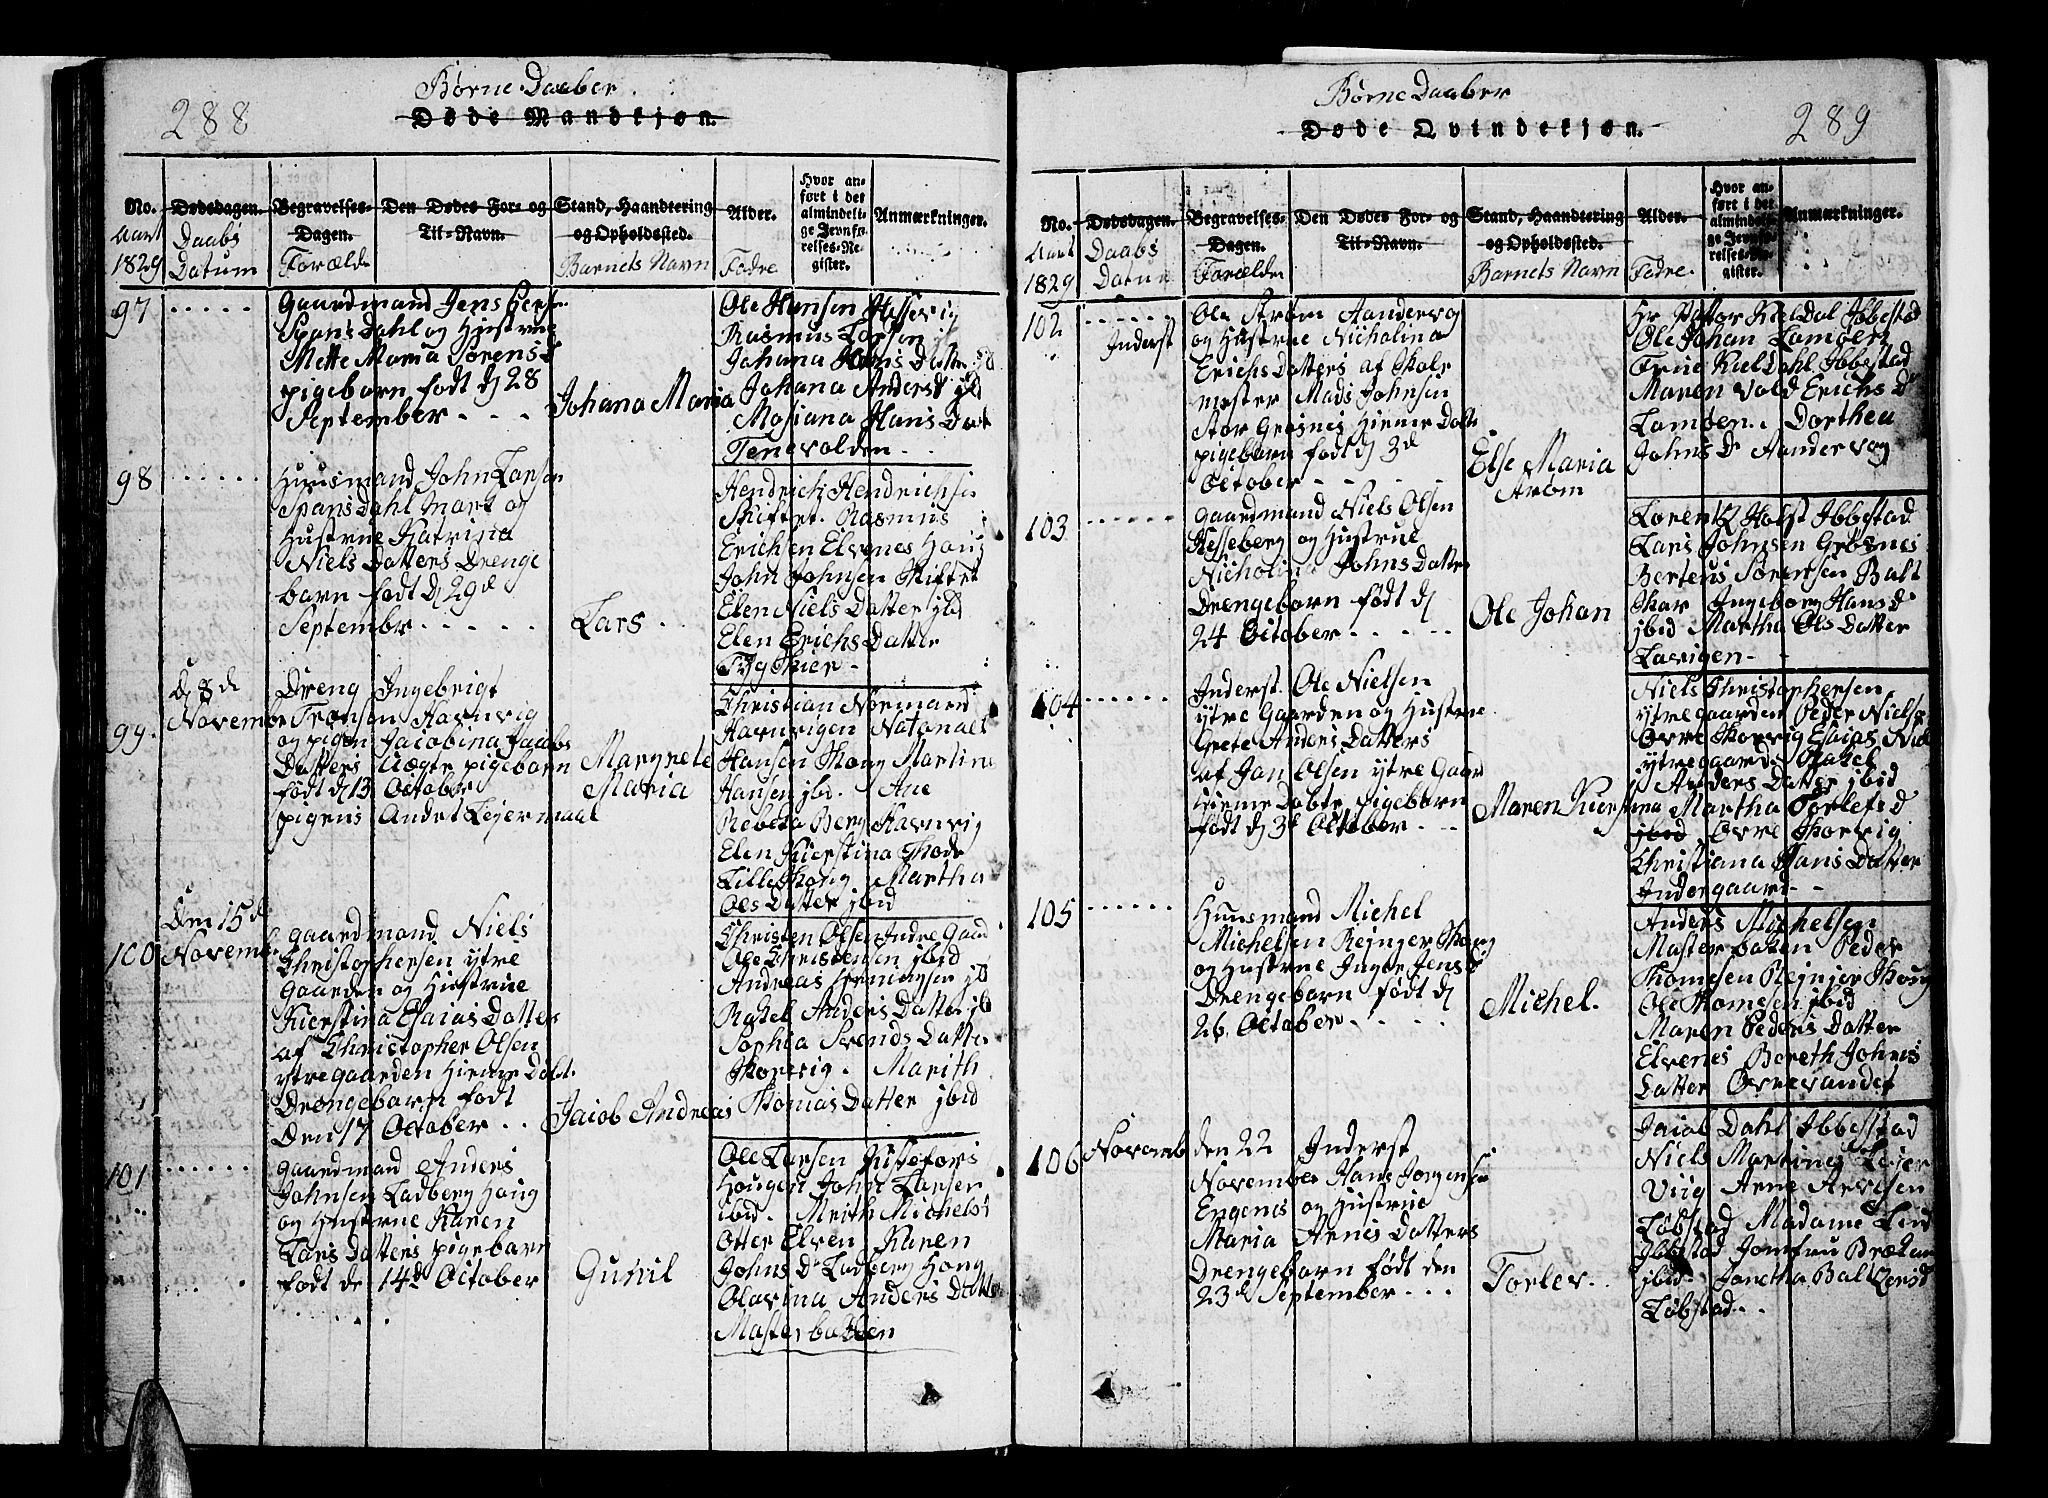 288
Børne Daaber
Døde Mandkjøn.
No.
Dødsdagen.
Begravelses-
Dagen.
Den Dødes For- og
Til-Navn.
Stand, Haandtering
og Opholdssted.
Alder.
Hvor an-
ført i det
almindeli-
ge Jevnfø-
relses-Re-
gister.
Anmærkninger.
Aaret
1829
Daabs
Datum
Forælde
Barnets Navn
Fadre
97
Gaardmand Jens
Spansdahl og Hustrue
Mette Maria Sørens D
pigebarn født d 28
September
Johana Maria
Ole Hansen Hessevig
Rasmus Larsen
Johana Hans Datter
Johana Anders D jbd
Mosiana Hans Dat
Tenevolden
98
Huusmand John Larsen
Spansdahl Mark og
Hustrue Katrina
Niels Datters Drenge
barn født d 29de
Septembr
Lars
Hendrich Hendrichsen
Skiftet. Rasmus
Erichsen Elvenes Houg
John Johnsen Skiftet
Elen Niels Datter jbd
Elen Erichs Datter
99.
D 8de
November
Dreng Ingebrigt
Tronsen Havnvig
og pigen Jacobina Jacobs
Datters Uægte pigebarn
født d 13 October
pigens Andet Lejermaal
Margrete
Maria
Christian Normand
Havnvigen Natanael
Hansen Skong Martine
Hansen jbd. Ane
Rebeka Berg Havnvig
Elen Kierstina Thode
Lille Skong Martha
Ols Datter jbid
100
Den 15d
Novemb.
Gaardmand Niels
Christophersen ytre
Gaarden og Hustrue
Kierstina Esaias Datters
af Christopher Olsen
ytregaarden Hieme Døbt
Drengebarn født
Den 17 October
Jacob Andreas
Christen Olsen Indre Gaard
Ole Christensen jbid
Andreas Hemingsen jbd
Rakel Anders Datter jbd
Sophia Svends Datter
Skorvig. Marith
Thomas Datter jbid
101
Gaardmand Anders
Johnsen Ladberg Houg
og Hustrue Karen
Lars Datters pigebarn
født de 14de October
Gunil
Ole Larsen
Hougen John Larsen
ibid. Mrith Michels D
Otter Elven Karen
Johns Dr Ladberg Houg
Olavina Anders Datter
Masterbakken
289
Børne Daaber
Døde Qvindekjøn.
No.
Dødsdagen.
Begravelses-
Dagen.
Den Dødes For- og
Til-Navn.
Stand, Haandtering
og Opholdssted.
Alder.
Hvor an-
ført i det
almindeli-
ge Jevnfø-
relses-Re-
gister.
Anmærkninger.
Aaret
1829
Daabs
Datum
Forælder
Barnets Navn
Fadre.
102
Inderst
Ole Strøm Aandervag
og Hustrue Nicholina
Erichs Datters af Skole
mester Mads Johnsen
Stor Grosnes Hieme Døbte
pigebarn født d 3de
October
Else Maria
Strøm
Hr Pastor Kieldal Ibbestad
Ole Johan Lamøen
Frue Kieldahl Ibbestad
Maren Vold Erichs Dr
Lamøen. Dorthea
Johns Dr Aandervag
103
Gaardmand Niels Olsen
Hesseberg og Hustrue
Nicholine Johns Datters
Drengebarn født d
24 October
Ole Johan
Lorentz Holst Ibbestad
Lars Johnsen Grosnes
Berteus Sørensen Balt
Skar Ingeborg Hans D
jbid Martha Ols Datter
Lavigen
104
Inderst. Ole Nielsen
ytre Gaarden og Hustrue
Grete Anders Datters
af Jan Olsen ytre Gaard
Hieme Døbte pigebarn
født d 3de October
Maren Kierstina
Niels Christophersen
ytregaarden Peder Nielsen
Øvre Skorvig Esaias Niel
ytregaard Rakel
Anders Datter jbid
Martha Torlefs D
jbid Øvre Skorvig
Christiana Hans Datter
Indergaard
105
Huusmand Michel
Michelsen Rejnjer Skoug
og Hustrue Inger Jens D
Drengebarn født d
26 October
Michel.
Anders Michelsen
Masterbaken Peder
Thomesen Rejnjer Skoug
Ole Thomesen jbid
Maren Peders Datter
Elvenes Bereth Johns
Datter Øvrevandet
106
Novemb
den 22 Inderst
November Hans Jørgensen
Engenes og Hustrue
Maria Arnes Datters
Drengebarn født den
23de September
Torlev.
Jacob Dahl Ibbestad
Niels Martines Lejer
Viig Arne Arvesen
Løbstad Madame Lund
Ibbestad Jomfru Brækan
jbid. Janetha Baltzers D
Løbstad